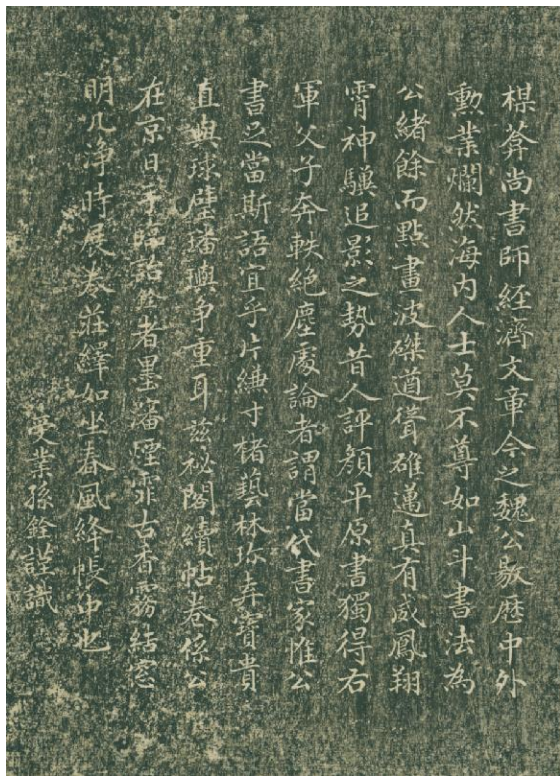 楳葊尚書師經濟文章今之魏公敭歷中外
勳業爛然海内人士莫不尊如山斗書法為
公緒餘而點畫波磔遒聳雄邁真有威鳳翔
霄神驥追影之勢昔人評顏平原書獨得右
軍父子奔軼絕塵處論者謂當代書家惟公
書足當斯語宜乎片縑寸楮藝林珍弆寶貴
直與球璧璠璵爭重耳茲祕閣續帖卷係公
在京日手臨詒銓者墨瀋煙霏古香霧結窓
明几淨時展卷莊繹如坐春風絳帳中也
受業孫銓謹識